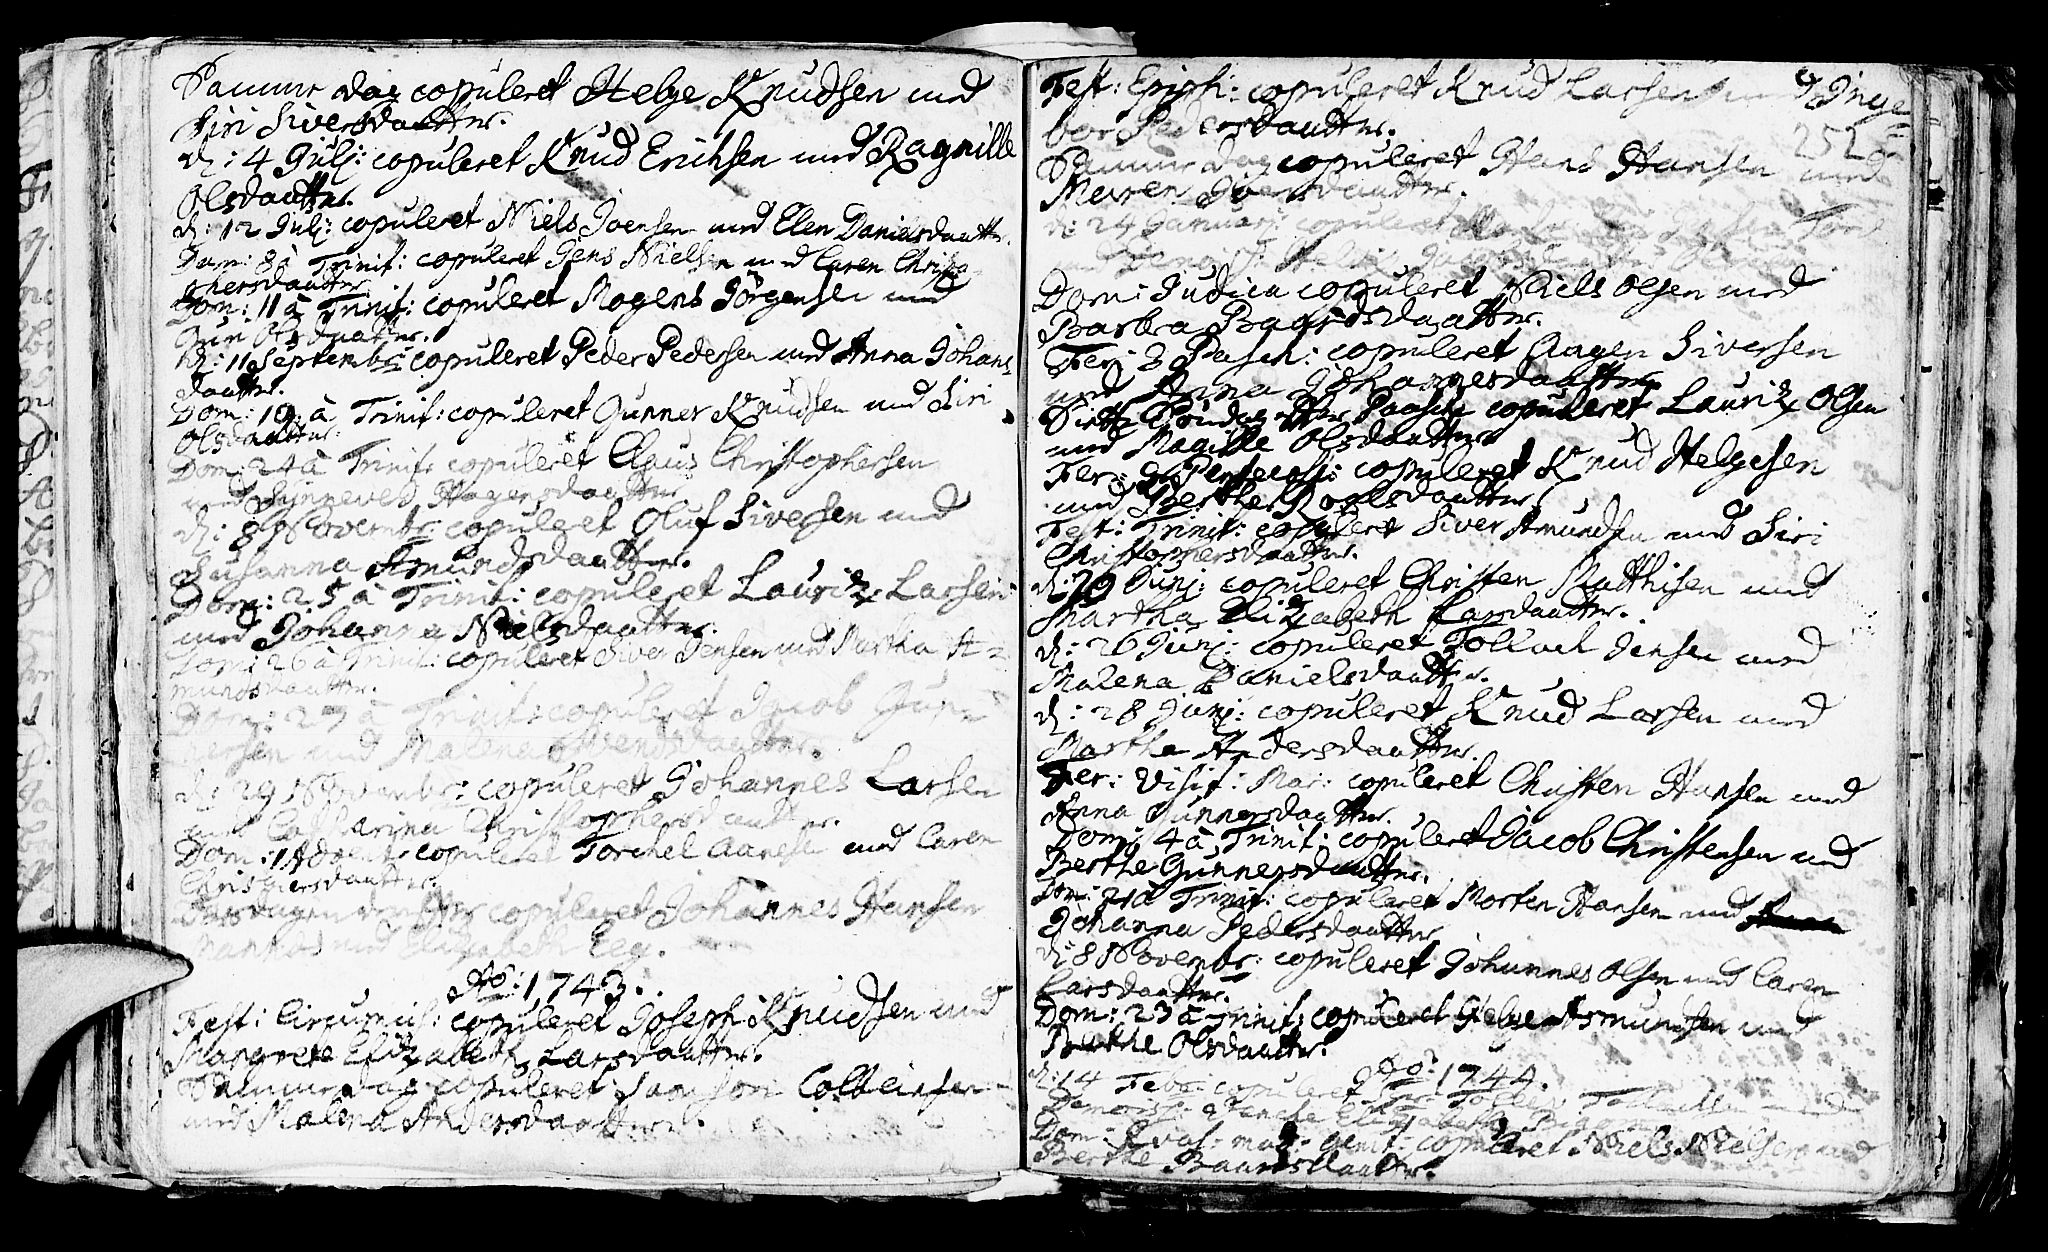 Samme dag copuleret Helge Knudsen med
Siri Siversdaatter.
d: 4 Julj: copuleret Knud Erichsen med Ragnille
Olsdaatter.
d: 12 Julj: copuleret Niels Joensen med Elen Danielsdaatter.
Dom: 8 à Trinit: copuleret Jens Nielsen med Caren Christo-
phersdaatter.
Dom: 11 à Trinit: copuleret Mogens Jörgensen med
Guri Olsdaatter.
d: 11 Septembr: copuleret Peder Pedersen med Anna Johans
daatter.
Dom: 19 à Trinit: copuleret Gunner Knudsen med Siri
Olsdaatter.
Dom: 24 à Trinit: copuleret Claus Christophersen
med Synneve Aagensdaatter.
d: 8 Novembr: copuleret Oluf Siversen med
Susanna Amundsdaatter.
Dom: 25 à Trinit: copuleret Lauritz Larsen
med Johanna Nielsdaatter.
Dom: 26 à Trinit: copuleret Siver Jensen med Martha A-
mundsdaatter.
Dom: 27 à Trinit: copuleret Jacob Gun-
nersen med Malena Svendsdaatter.
d: 29 Novembr: copuleret Johannes Larsen
med Catharina Christophersdaatter.
Dom: 1 Advent: copuleret Torchel Aanesen med Caren
Christophersdaatter.
Tirsdagen derefter copuleret Johannes Hansen
med Elizabeth Eeg.
Ao: 1743.
Fest: Circumcis: copuleret Joseph Knudsen med
Margrete Elizabeth Larsdaatter.
Samme dag copuleret Colbiensen
med Malena Andersdaatter.
Fest: Epiph: copuleret Knud Larsen med Inge-
bor Pedersdaatter.
252
Samme dag copuleret Hans Hansen med
Maren Joensdaatter.
d: 24 Januarj: copuleret
Dom: Judica copuleret Niels Olsen med
Barbra Baardsdaatter.
Fer: 3 Pasch: copuleret Aagen Siversen
med Anna Johannesdaatter.
Paaske copuleret Lauritz Olsen
med Magille Olsdaatter.
Fer: Pentecost: copuleret Knud Helgesen
med Berthe Poulsdaatter.
Fest: Trinit: copuleret Siver Amundsen med Siri
Christophersdaatter.
d: 20 Junj: copuleret Christen Matthisen med
Martha Elizabeth Larsdaatter.
d: 26 Junj: copuleret Tollach Jensen med
Malena Danielsdaatter.
d: 28 Junj: copuleret Knud Larsen med
Marthe Andersdaatter.
Fer: Visit: Mar: copuleret Christen Hansen med
Anna Gunnersdaatter.
Dom: 4 à Trinit: copuleret Jacob Christensen med
Berthe Gunnersdaatter.
Dom: 21 à Trinit: copuleret Morten Hansen med
Johanna Pedersdaatter.
d: 8 Novembr: copuleret Johannes Olsen med Caren
Larsdaatter.
Dom: 23 à Trinit: copuleret Helge Asmundsen med
Berthe Olsdaatter.
Ao: 1744.
d: 14 Febr: copuleret Tollachsen med
Elizabeth
Dom: Qvasi mod: genit: copuleret Niels Nielsen med
Berthe Baardsdaatter.